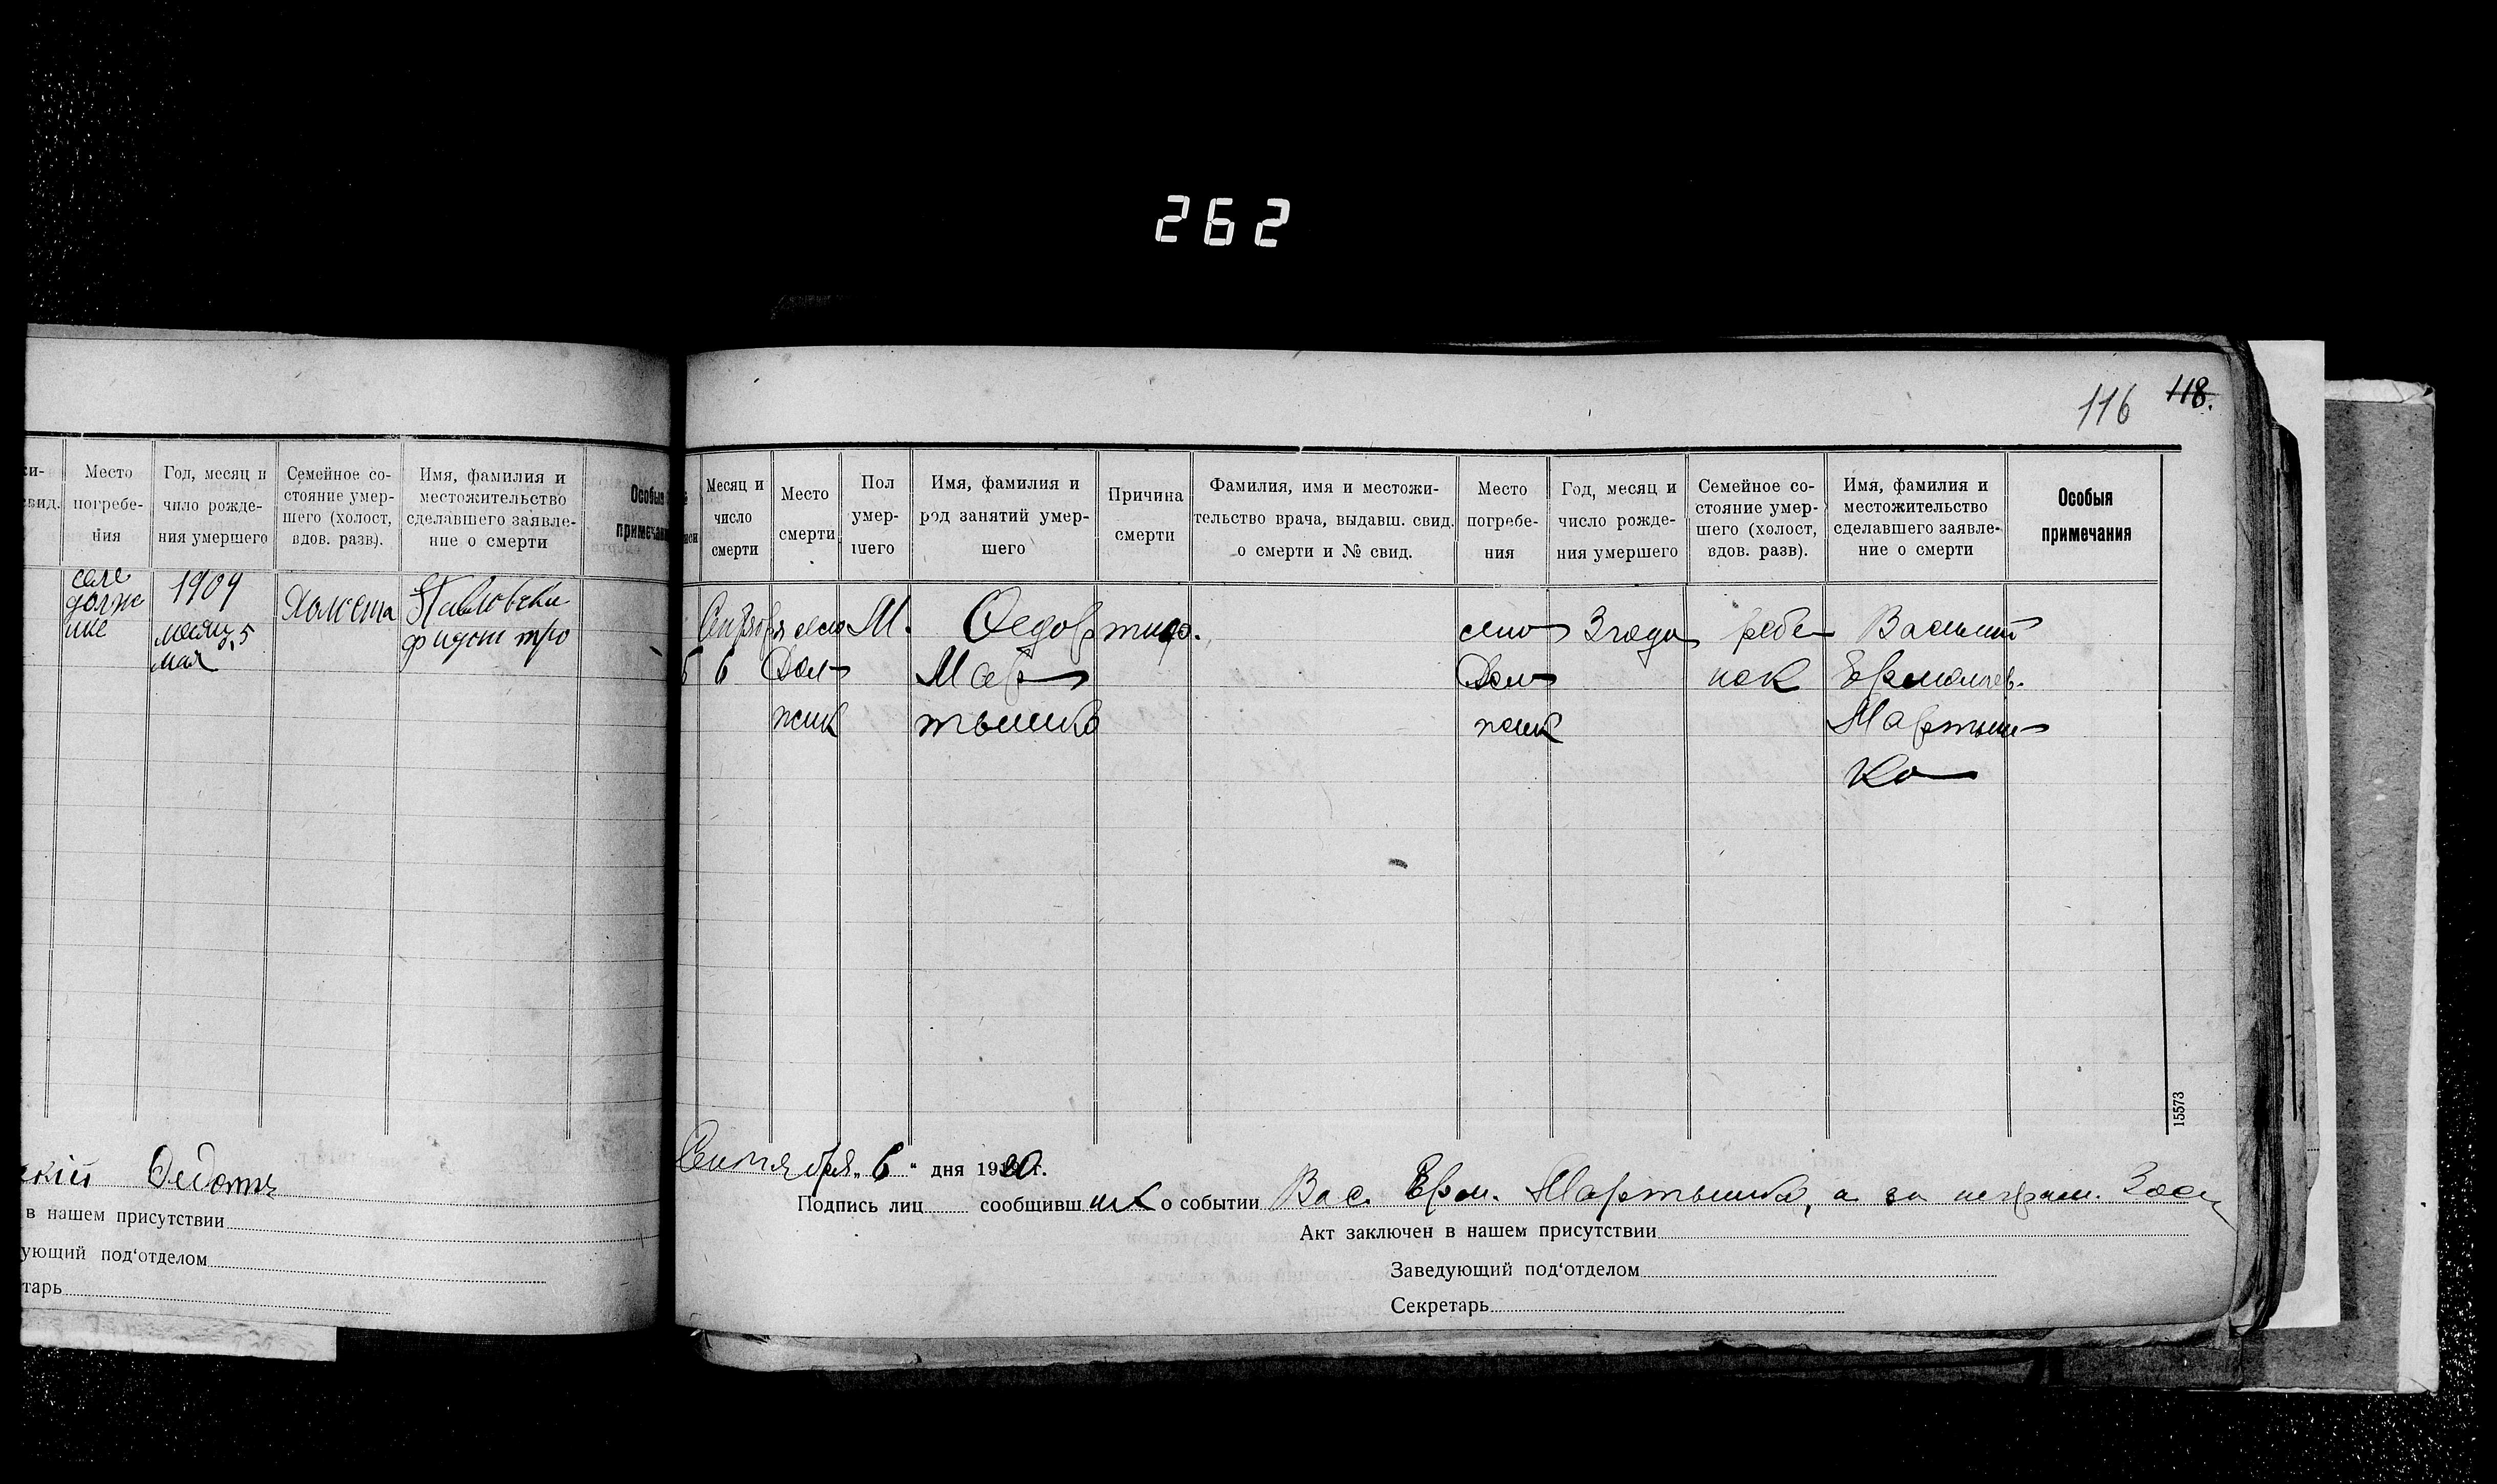 262
116 118.
ки-
свид.
Место
погребе-
ния
Год, месяц и
число рожде-
ния умершего
Семейное со-
стояние умер-
шего (холост,
вдов. разв).
Имя, фамилия и
местожительство
сделавшего заявле-
ние о смерти
Особыя
примечан
селе
долж
ике
1909
месяц 5
мая
Холоста
Павловски
федот тро
ский Федотъ
в нашем присутствии
ующий под‘отделом
тарь
Месяц и
число
смерти
Место
смерти
Пол
умер-
шего
Имя, фамилия и
род занятий умер-
шего
Причина
смерти
Фамилия, имя и местожи-
тельство врача, выдавш. свид.
о смерти и № свид.
Место
погребе-
ния
Год, месяц и
число рожде-
ния умершего
Семейное со-
стояние умер-
шего (холост,
вдов. разв).
Имя, фамилия и
местожительство
сделавшего заявле-
ние о смерти
Особыя
примечания
Сентября село М. Федор тиф. село 3 года ребе- Василий
6 Дол- Мар- Дол- нок Ермолаев.
жик тышко жик Мартыш-
ко
15573
Сентября „ 6 “ дня 1920 г.
Подпись лиц сообщивш их о событии Вас. Ерм. Мартышко, а за неграм.
Акт заключен в нашем присутствии
Заведующий под‘отделом
Секретарь